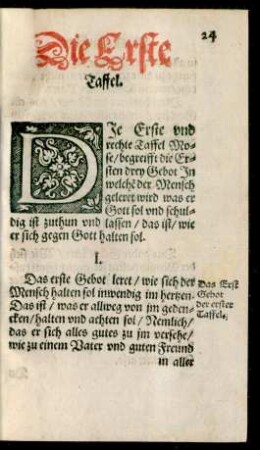 24
Die Erste
Taffel.
DIe Erste vnd
rechte Taffel Mo-
se/begreifft die Er-
sten drey Gebot In
welchē der Mensch
geleret wird was er
Gott sol vnd schul-
dig ist zuthun vnd lassen/das ist/wie
er sich gegen Gott halten sol.
I.
Das erste Gebot leret/wie sich der
Mensch halten sol inwendig im hertzen.
Das ist/was er allweg von jm geden-
cken/halten vnd achten sol/Nemlich/
das er sich alles gutes zu jm versehe/
wie zu einem Vater vnd guten Freund
in aller
Das Erst
Gebot
der erster
Taffel.